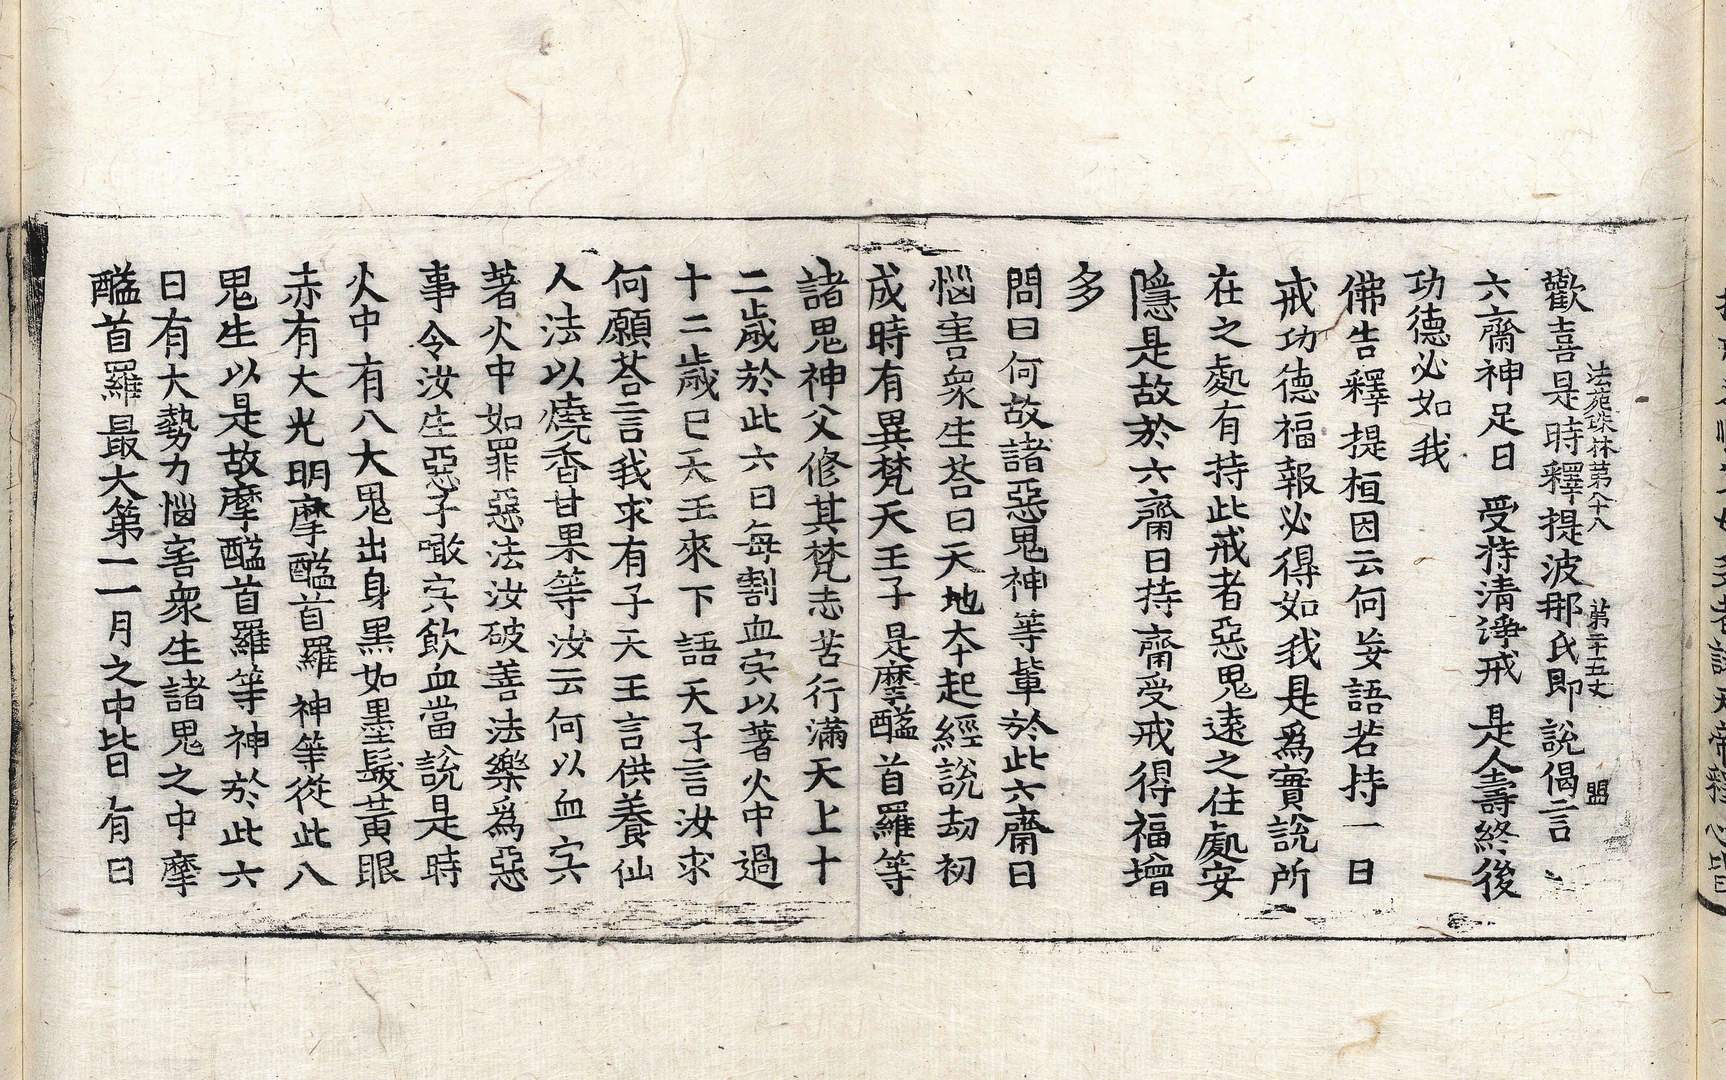 法苑珠林第八十八　第二十五丈　盟
歡喜是時釋提波那氏即說偈言
六齋神足日　受持清淨戒　是人壽終後
功德必如我
佛告釋提桓因云何妄語若持一日
戒功德福報必得如我是爲實說所
在之處有持此戒者惡鬼遠之住處安
隱是故於六齋日持齋受戒得福增
多
問曰何故諸惡鬼神等輩於此六齋日
惱害衆生荅曰天地夲起經說劫初
成時有異梵天王子是摩醯首羅等
諸鬼神父修其梵志苦行滿天上十
二歲於此六日每割血宍以著火中過
十二歲已天王來下語天子言汝求
何願荅言我求有子天王言供養仙
人法以燒香甘果等汝云何以血宍
著火中如罪惡法汝破善法樂爲惡
事令汝生惡子噉宍飲血當說是時
火中有八大鬼出身黑如墨髮黃眼
赤有大光明摩醯首羅神等從此八
鬼生以是故摩醯首羅等神於此六
日有大勢力惱害衆生諸鬼之中摩
醯首羅最大第一一月之中皆有日